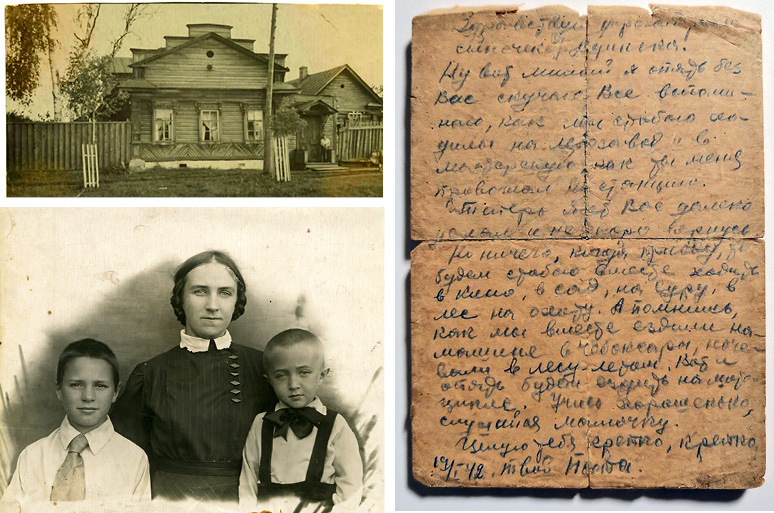 Здравствуй
синочек Рудинька.
Ну вот милий я опять без
Вас скучаю Все вспоми-
наю, как мы стобою хо-
дилы на лесозавод и в
мастерскую как ты меня
провожал на станцию.
Типерь я от Вас далеко
уехал и не скоро вернусь
Ни ничего, когда приеду, ты
будем стобою вместе ходить
в кино, в сад, на Суру, в
лес на охоту. А помнишь,
как мы вместе ездили на
машине в Чебоксары, ноче-
вали в лесу летом. Вот и
опять будем ездить на мото-
цикле. Учись хорошенько,
слушайся мамочку.
Цилую тебя крепко, крепко
твой Папа.